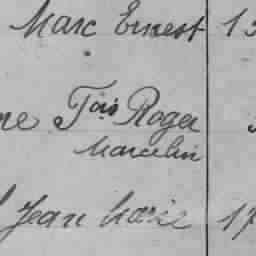 Marc Ernest 1
ne Fois Roger
Marcelin
Jean Marie 17